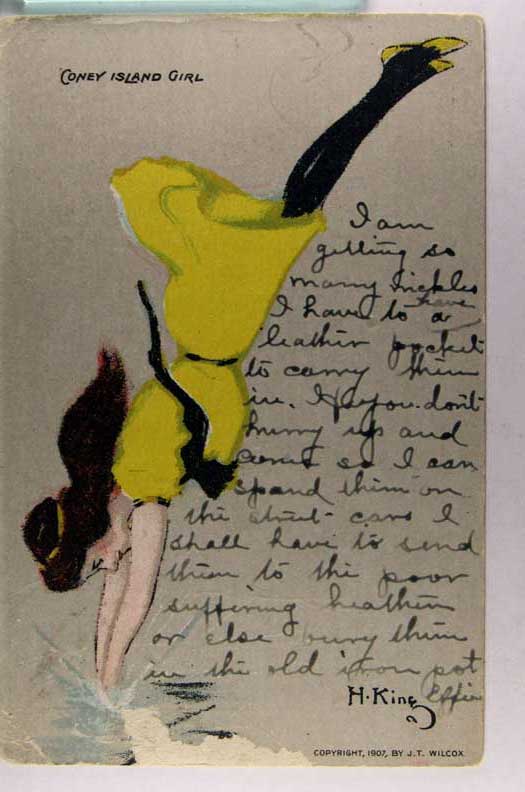 CONEY ISLAND GIRL
I am
getting so
many nickles
have
I have to a
leather pocket
to carry them
in. If you don't
hurry up and
come so I can
spend them on
the street cars I
shall have to send
them to the poor
suffering heathen
or else bury them
in the old iron pot
Effie
H. King
COPYRIGHT, 1907, BY J.T. WILCOX